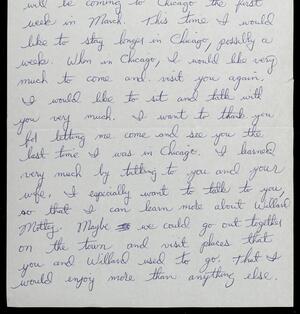 will be coming to Chicago the first
week in March. This time I would
like to stay longer in Chicago, possibly a
week. When in Chicago, I would like very
much to come and visit you again.
I would like to sit and talk with
you very much. I want to thank you
for letting me come and see you the
last time I was in Chicago. I learned
very much by talking to you and your
wife. I especially want to talk to you,
so that I can learn more about Willard
Motley. Maybe we could go out together
on the town and visit places that
you and Willard used to go. That I
would enjoy more than anything else.